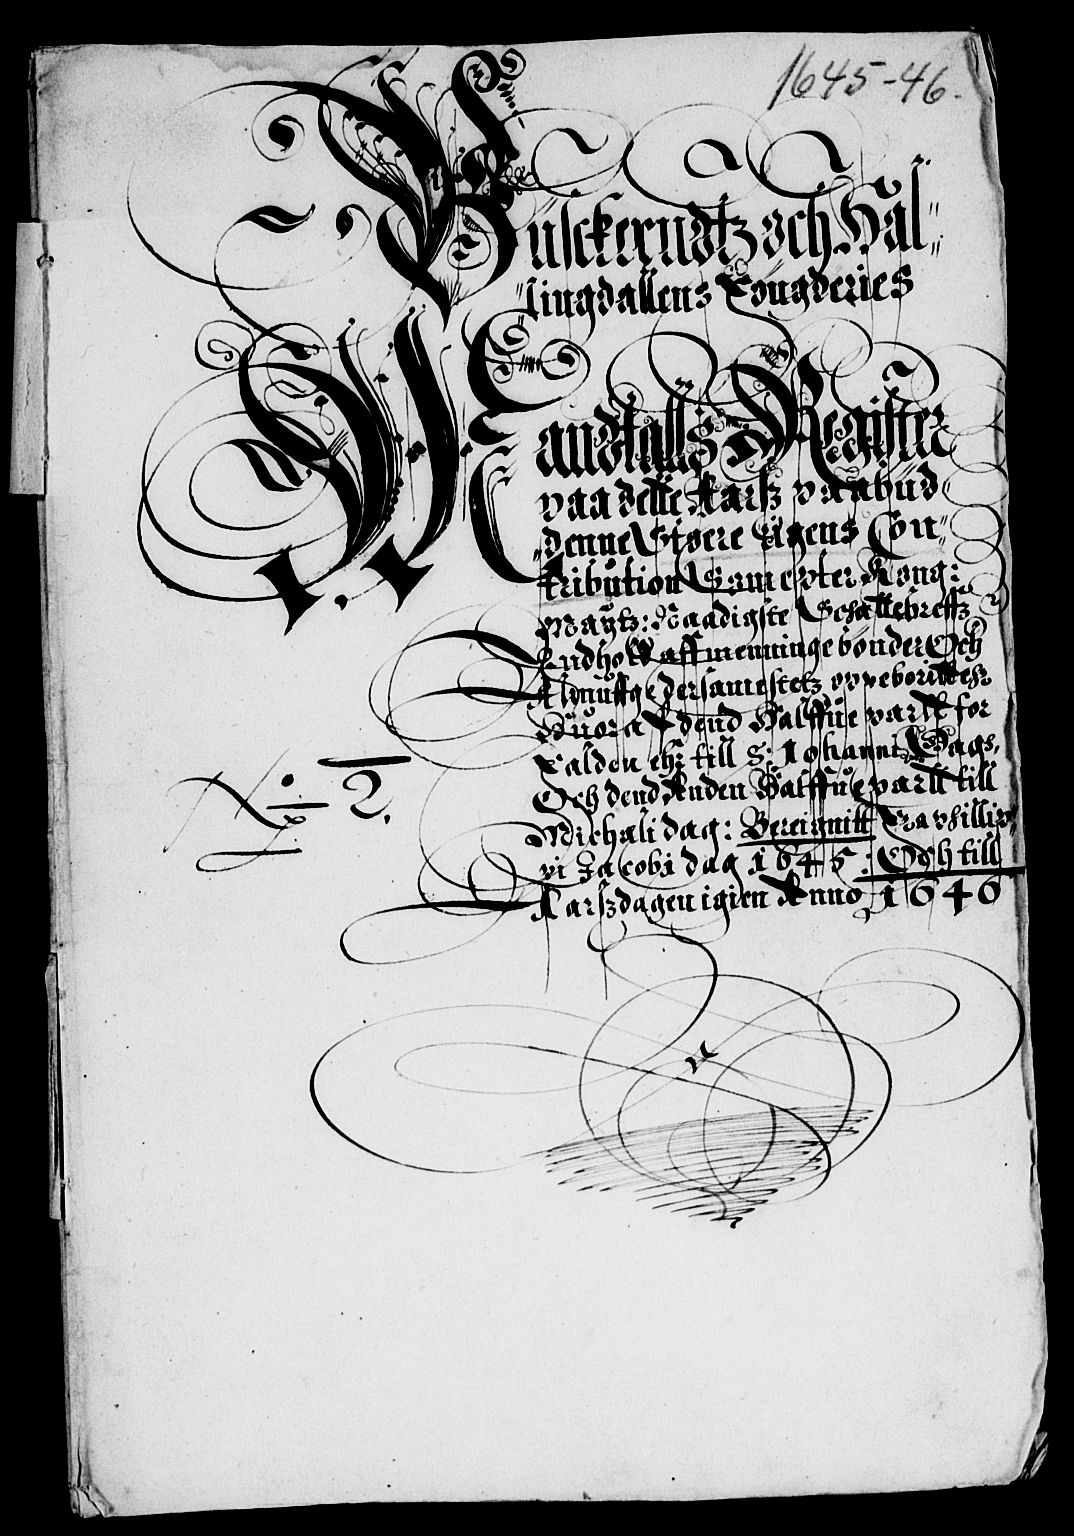 1645-46.
Buschkerudtz och Hal=
lingdallens Fougderies
Mandtalls Register
paa dette Aarsz paabud=
denne Visere Rigens Con=
tribution Som epter Kong:
Maytz: Naadigste Schattebreffz
Indhold aff menninge bønder Och
Almuffge dersamestetz oppeborittesz
Huoraf dend Halffue part er for
falden ehr till S: Johannis Dags,
Och dend Anden Halffue partt till
Michali dag: Bereignitt Fra Phillip
pi Jacobi dag 1645: Och till
Aarszdagen igien Anno 1646
No 2.